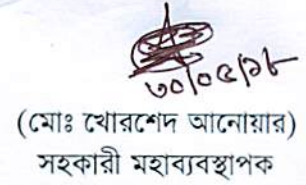 ৩০/০৫/১৮
(মোঃ খোরশেদ আনোয়ার)
সহকারী মহাব্যবস্থাপক